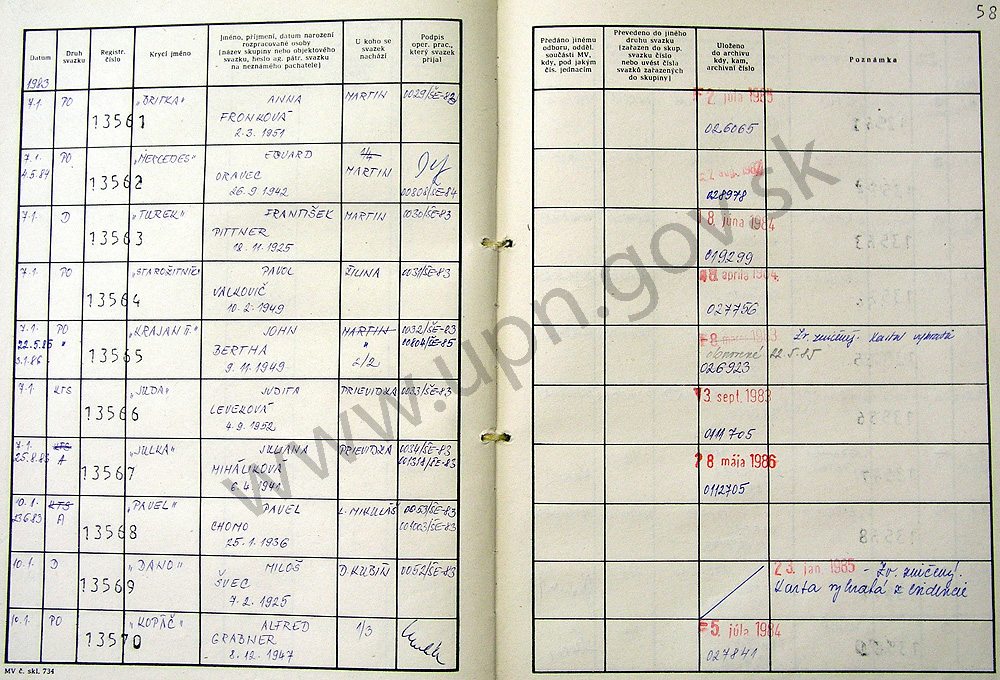 58
Datum
Druh svazku
Registr. číslo
Krycí jméno
Jméno, příjmení, datum narození rozpracované osoby
[název skupiny nebo objektového svazku, heslo ag. pátr. svazku na neznámého pachatele]
U koho se svazek nachází
Podpis oper. prac., který svazek přijal
Předáno jinému odboru, odděl. součásti MV, kdy, pod jakým čís. jednacím
Převedeno do jiného druhu svazku [zařazen do skup. svazku číslo nebo uvést čísla svazků zařazených do skupiny]
Uloženo do archivu kdy, kam, archivní číslo
Poznámka
1983
7.1. PO 13561 ANNA MARTIN 0029/ŠE-83
FRONKOVÁ
2.3.1951
2. júla 1985
026065
7.1. PO 13562 „MERCEDES" EDUARD MARTIN
4.5.84 ORAVEC 00808/ŠE-84
26.9.1942
028978
7.1. D 13563 „TUREK" FRANTIŠEK MARTIN 0030/ŠE-83
PITTNER
12.11.1925
8. júna 1984
019299
7.1. PO 13564 „STAROŽITNÍK" PAVOL ŽILINA 0031/ŠE-83
VALKOVIČ
10.2.1949
apríla 1984
027756
7.1. PO 13565 „KRAJAN II." JOHN MARTIN 0032/ŠE-83
22.5.85 " BERTHA " 00804/ŠE-85
3.1.86 9.11.1949 2/2
obnovené 22.5.85
026923
Zv. zničený. Karta vybratá
7.1. KTS 13566 „JUDA" JUDITA PRIEVIDZA 0033/ŠE-83
LEVEKOVÁ
4.9.1952
13. sept. 1983
0111705
7.1. KTS 13567 „JULKA" JULIANA PRIEVIDZA 0034/ŠE-83
A MIHÁLIKOVÁ
6.4.1941
28 mája 1986
0112705
10.1. KTS 13568 „PAVEL" PAVEL L. MIKULÁŠ 0053/ŠE-83
23.6.83 A CHOMO 001003/ŠE-83
25.1.1936
10.1. D 13569 „DANO" MILOŠ D. KUBÍN 0052/ŠE-83
ŠVEC
7.2.1925
23. jan 1985 - Zv. zničený.
Karta vybratá z evidencie
10.1. PO 13570 „KOPÁČ" ALFRED 1/3
GRABNER
8.12.1947
5. júla 1984
027841
MV č. skl. 734
www.upn.gov.sk